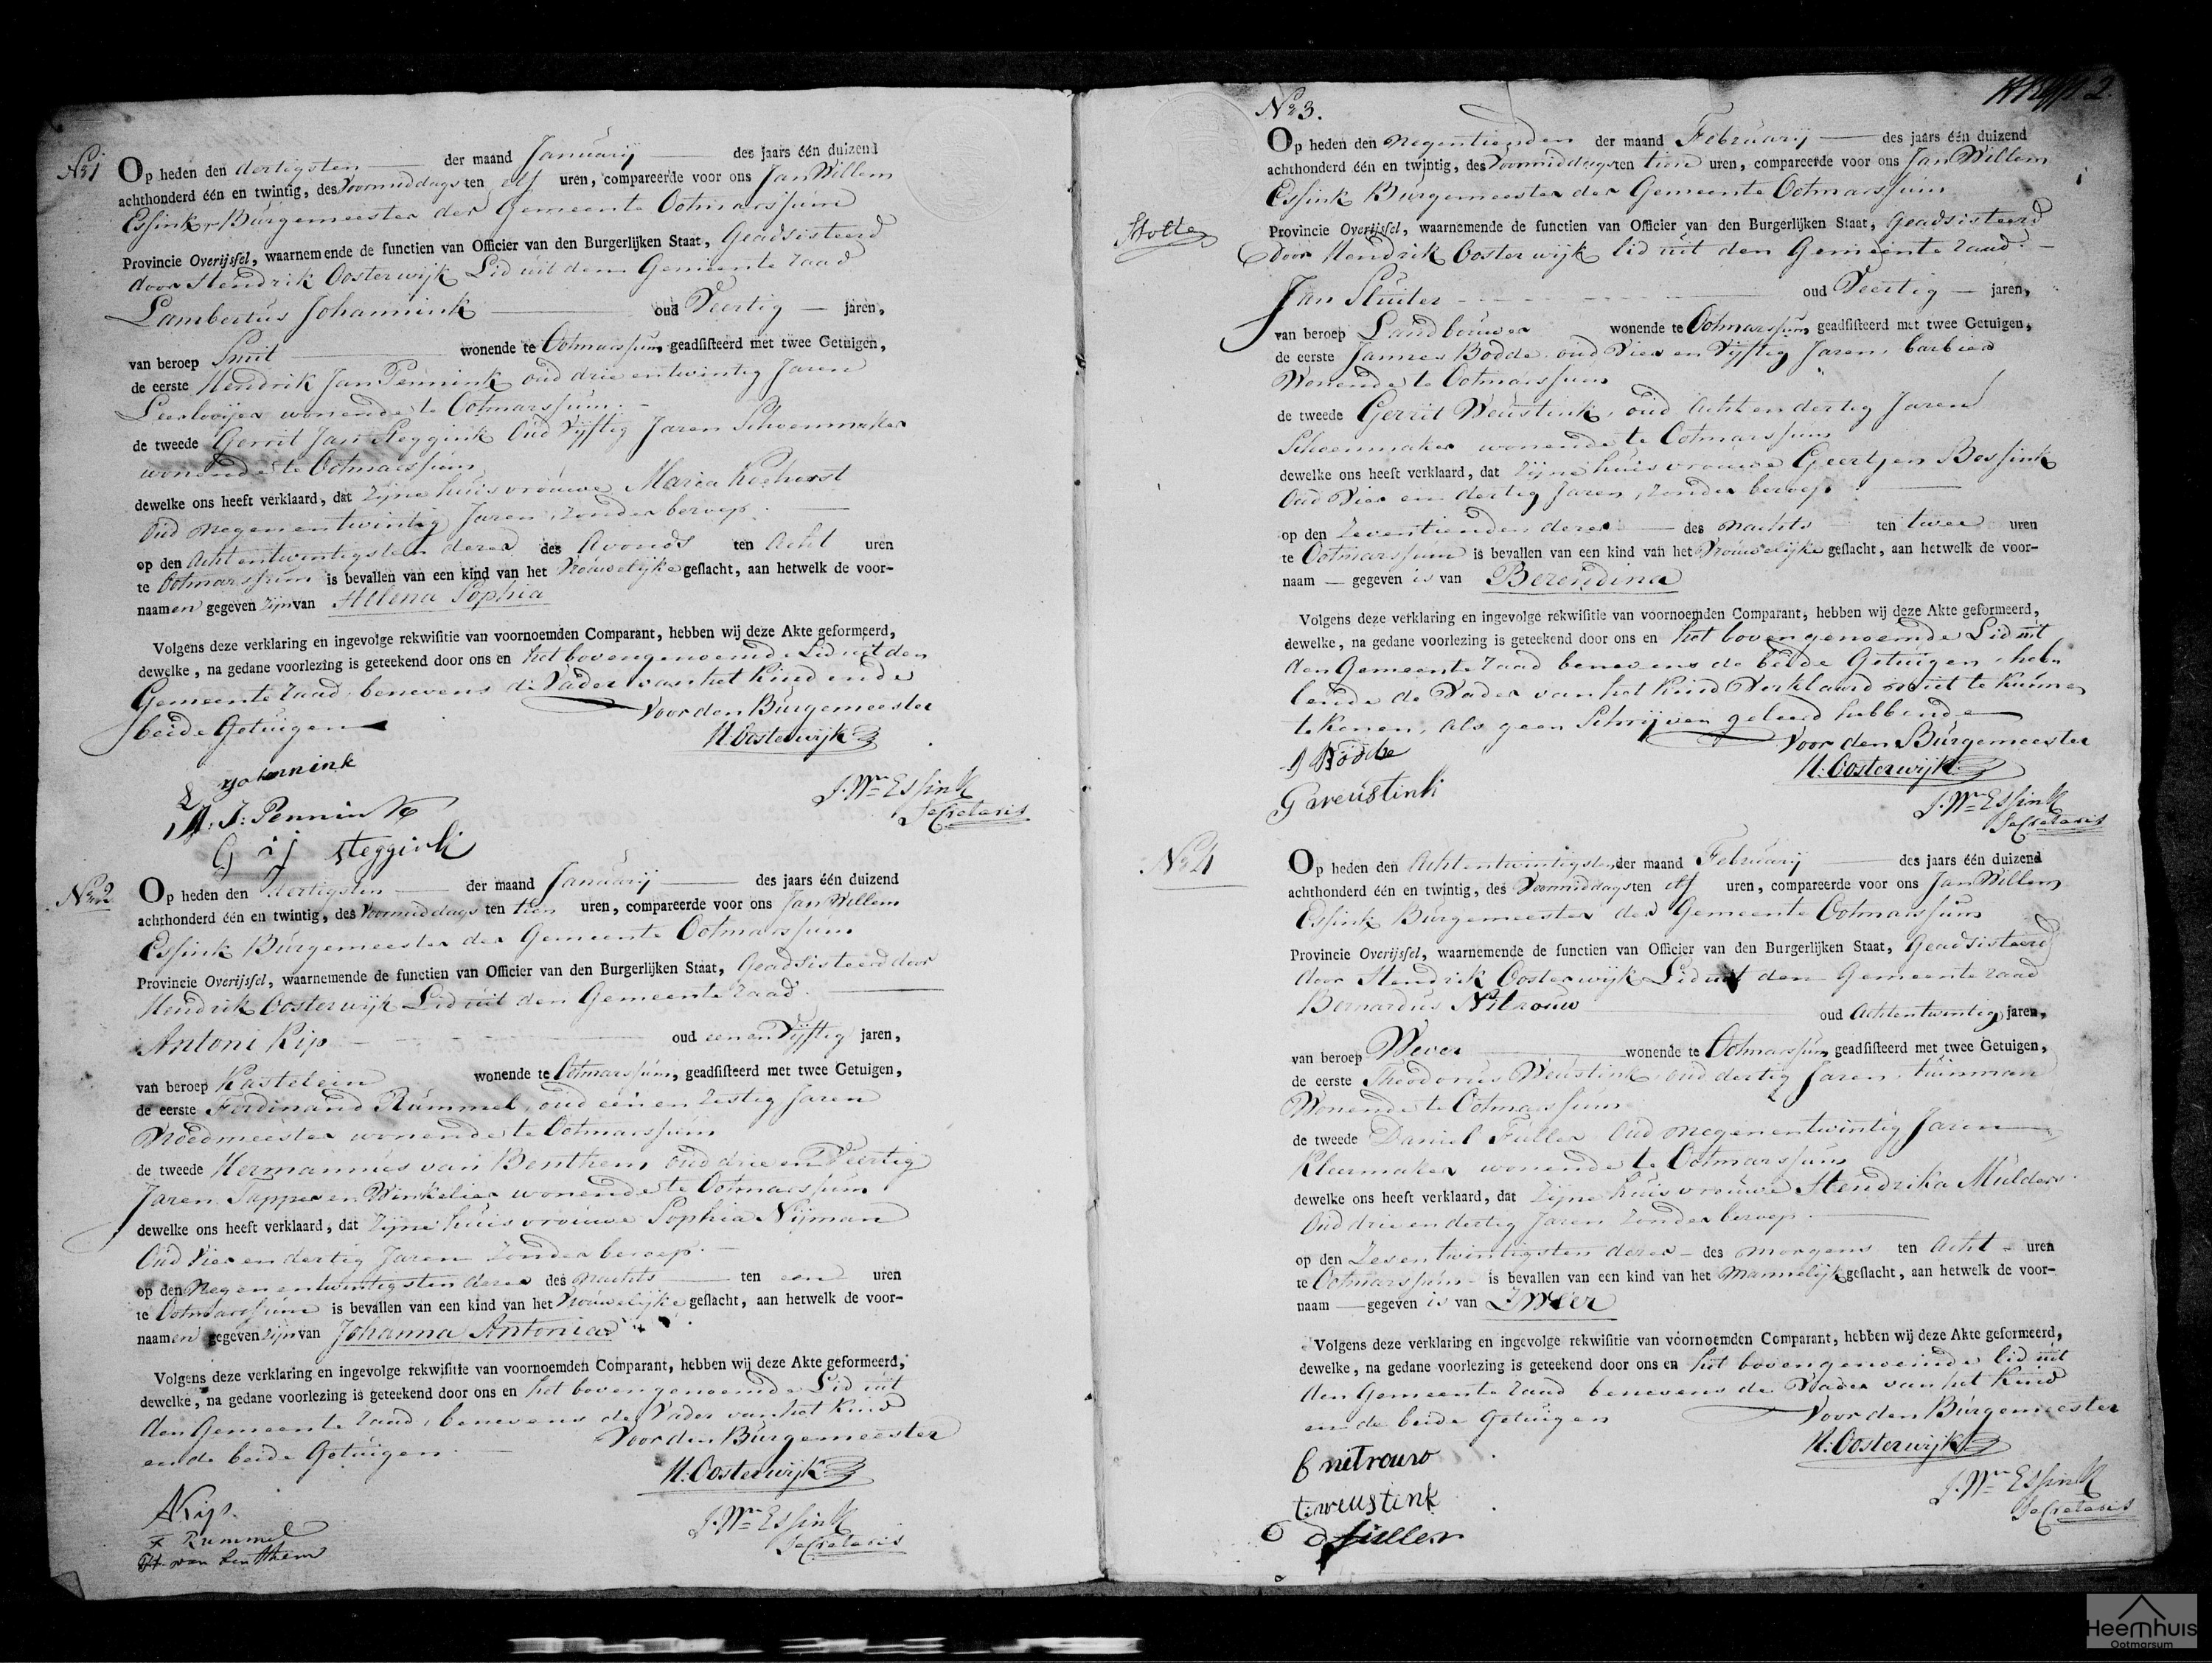 No 1
Op heden den dertigsten der maand Januarij des jaars één duizend
achthonderd één en twintig, des Voormiddags ten elf uren, compareerde voor ons Jan Willem
Essink Burgemeester der Gemeente Ootmarssum
Provincie Overijssel, waarnemende de functien van Officier van den Burgerlijken Staat, Geadsisteerd
door Hendrik Oosterwijk Lid uit den Gemeente raad
Lambertus Johannink oud Veertig jaren,
van beroep Smit wonende te Ootmarssum, geadsisteerd met twee Getuigen,
de eerste Hendrik Jan Pennink oud drie entwintig Jaren
Leerlooijer wonende te Ootmarssum.
de tweede Gerrit Jan Steggink Oud Vijftig Jaren Schoenmaker
wonende te Ootmarssum
dewelke ons heeft verklaard, dat zijne huisvrouwe Maria Koehorst
Oud negenentwintig Jaren zonder beroep.
op den Acht entwintigsten dezer des Avonds ten Acht uren
te Ootmarssum is bevallen van een kind van het Vrouwelijke geslacht, aan hetwelk de voor-
naamen gegeven zijn van Helena Sophia
Volgens deze verklaring en ingevolge rekwisitie van voornoemden Comparant, hebben wij deze Akte geformeerd,
dewelke, na gedane voorlezing is geteekend door ons en het bovengenoemde Lid uit den
Gemeente raad, benevens de Vader van het Kind en de
beide Getuigen
Voor den Burgemeester
H: Oosterwijk
L Johannink
H: J: Pennink
G J Steggink
J. Wm Essink
Secretaris
No 2
Op heden den dertigsten der maand Januarij des jaars één duizend
achthonderd één en twintig, des Voormiddags ten tien uren, compareerde voor ons Jan Willem
Essink Burgemeester der Gemeente Ootmarssum
Provincie Overijssel, waarnemende de functien van Officier van den Burgerlijken Staat, Geadsisteerd door
Hendrik Oosterwijk Lid uit den Gemeente raad
Antoni Kip oud een en Vijftig jaren,
van beroep Kastelein wonende te Ootmarssum, geadsisteerd met twee Getuigen,
de eerste Ferdinand Rummel, oud een en zestig Jaren
Vroedmeester wonende te Ootmarssum
de tweede Hermannus van Benthem oud drie en Veertig
Jaren Tapper en Winkelier wonende te Ootmarssum
dewelke ons heeft verklaard, dat zijne huisvrouwe Sophia Nijman
Oud Vier en dertig Jaren zonder beroep.
op den Negen entwintigsten dezer des Nachts ten een uren
te Ootmarssum is bevallen van een kind van het Vrouwelijke geslacht, aan hetwelk de voor-
naamen gegeven zijn van Johanna Antonia
Volgens deze verklaring en ingevolge rekwisitie van voornoemden Comparant, hebben wij deze Akte geformeerd,
dewelke, na gedane voorlezing is geteekend door ons en het bovengenoemde Lid uit
den Gemeente raad, benevens de Vader van het Kind
en de beide Getuigen.
Voor den Burgemeester
H: Oosterwijk
AKip.
F Rummel
H van benthem
J. Wm Essink
Secretaris
2
No 3.
Op heden den negentienden der maand Februarij des jaars één duizend
achthonderd één en twintig, des Voormiddags ten tien uren, compareerde voor ons Jan Willem
Essink Burgemeester der Gemeente Ootmarssum
Stolte
Provincie Overijssel, waarnemende de functien van Officier van den Burgerlijken Staat, Geadsisteerd
door Hendrik Oosterwijk lid uit den Gemeente raad.
Jan Sluiter oud Veertig jaren,
van beroep Landbouwer wonende te Ootmarssum, geadsisteerd met twee Getuigen,
de eerste Jannes Bodde oud Vier en Vijftig Jaren, barbier
Wonende te Ootmarssum
de tweede Gerrit Weustink, oud Acht en dertig Jaren
Schoenmaker wonende te Ootmarssum
dewelke ons heeft verklaard, dat zijne huisvrouwe Geertjen Bossink
Oud Vier en dertig Jaren, zonder beroep
op den Zeventienden dezer des nachts ten twee uren
te Ootmarssum is bevallen van een kind van het Vrouwelijke geslacht, aan hetwelk de voor-
naam gegeven is van Berendina
Volgens deze verklaring en ingevolge rekwisitie van voornoemden Comparant, hebben wij deze Akte geformeerd,
dewelke, na gedane voorlezing is geteekend door ons en het bovengenoemde Lid uit
den Gemeente raad benevens de beide Getuigen, heb-
bende de Vader van het Kind Verklaard niet te kunnen
tekenen, als geen Schrijven geleerd hebbende
Voor den Burgemeester
H: Oosterwijk
J Bodde
G weustink
J. Wm Essink
Secretaris
No 4
Op heden den Acht entwintigsten der maand Februarij des jaars één duizend
achthonderd één en twintig, des Voormiddags ten elf uren, compareerde voor ons Jan Willem
Essink Burgemeester der Gemeente Ootmarssum
Provincie Overijssel, waarnemende de functien van Officier van den Burgerlijken Staat, Geadsisteerd
door Hendrik Oosterwijk Lid uit den Gemeente raad
Bernardus Nitrouw oud Achtentwintig jaren,
van beroep Wever wonende te Ootmarssum, geadsisteerd met twee Getuigen,
de eerste Theodorus Weustink, oud dertig Jaren, tuinman
Wonende te Ootmarssum
de tweede Daniel Fuller Oud negenentwintig Jaren
Kleermaker wonende te Ootmarssum
dewelke ons heeft verklaard, dat zijne huisvrouwe Hendrika Mulders
Oud drie en dertig Jaren zonder beroep.
op den Zesentwintigsten dezer des morgens ten Acht uren
te Ootmarssum is bevallen van een kind van het Mannelijk geslacht, aan hetwelk de voor-
naam gegeven is van Zweer
Volgens deze verklaring en ingevolge rekwisitie van voornoemden Comparant, hebben wij deze Akte geformeerd,
dewelke, na gedane voorlezing is geteekend door ons en het bovengenoemde lid uit
den Gemeente raad benevens de Vader van het Kind
en de beide Getuigen
Voor den Burgemeester
H: Oosterwijk
b nitrouw
t: weustink
D fuller
J. Wm Essink
Secretaris
Heemhuis
Ootmarsum